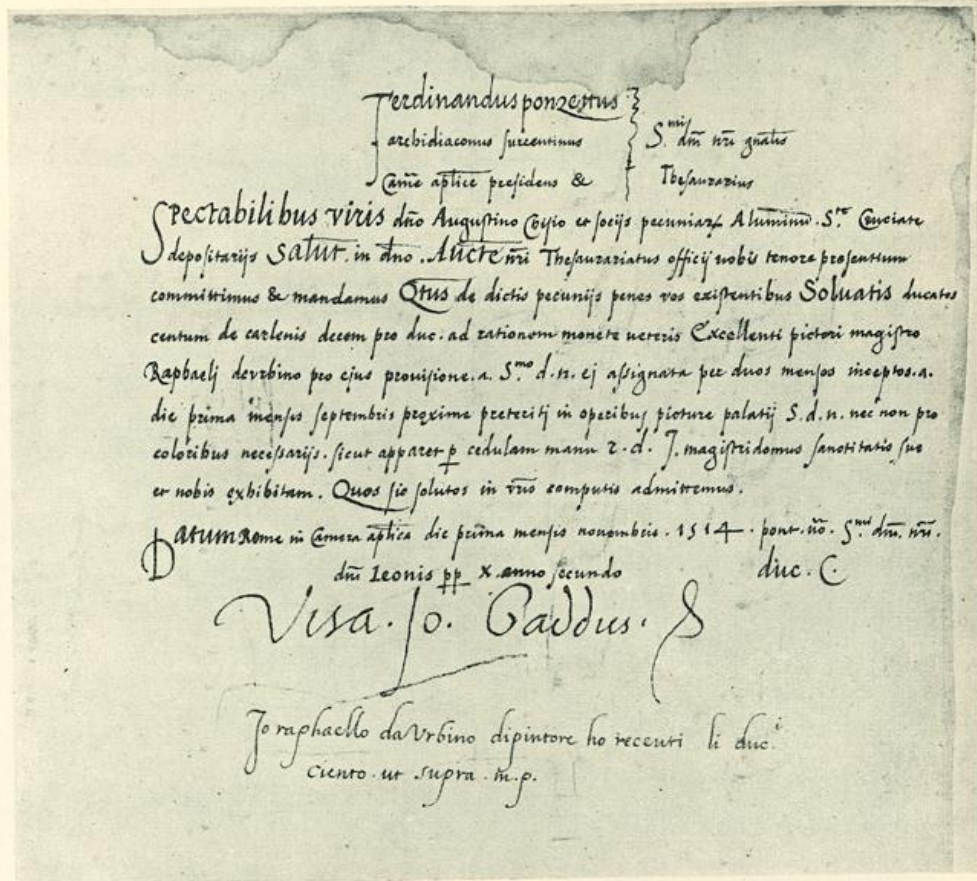 Ferdinandus ponzettus
archidiaconus surrentinus S.mi dni nri gnalis
Camē aplice presidens & Thesaurarius
Spectabilibus viris dño Augustino Chisio et socijs pecuniarꝝ Aluminū. S.te Cruciate
depositarijs Salut̄. in dño. Aucte nr̄i Thesaurariatus officij uobis tenore presentium
committimus & mandamus Qtus de dictis pecunijs penes vos existentibus Soluatis ducatos
centum de carlenis decem pro duc. ad rationem monete ueteris Excellenti pictori magistro
Raphaelj de vrbino pro ejus prouisione. a. S.mo d. n. ej assignata per duos menses inceptos. a.
die prima mensis septembris proxime preteritj in operibus picture palatij S. d. n. nec non pro
coloribus necessarijs. sicut apparet ꝑ cedulam manu r. d. J. magistridomus sanctitatis sue
et nobis exhibitam. Quos sic solutos in vr̄is computis admittemus.
Datum Rome in Camera aplica die prima mensis nouembris. 1514. pont. S.mi dni. nri.
dni Leonis pp X. anno secundo duc. C
Visa. Jo. Gaddus.
Jo raphaello da Vrbino dipintore ho receuti li duc.i
ciento. ut supra. m̄. p.